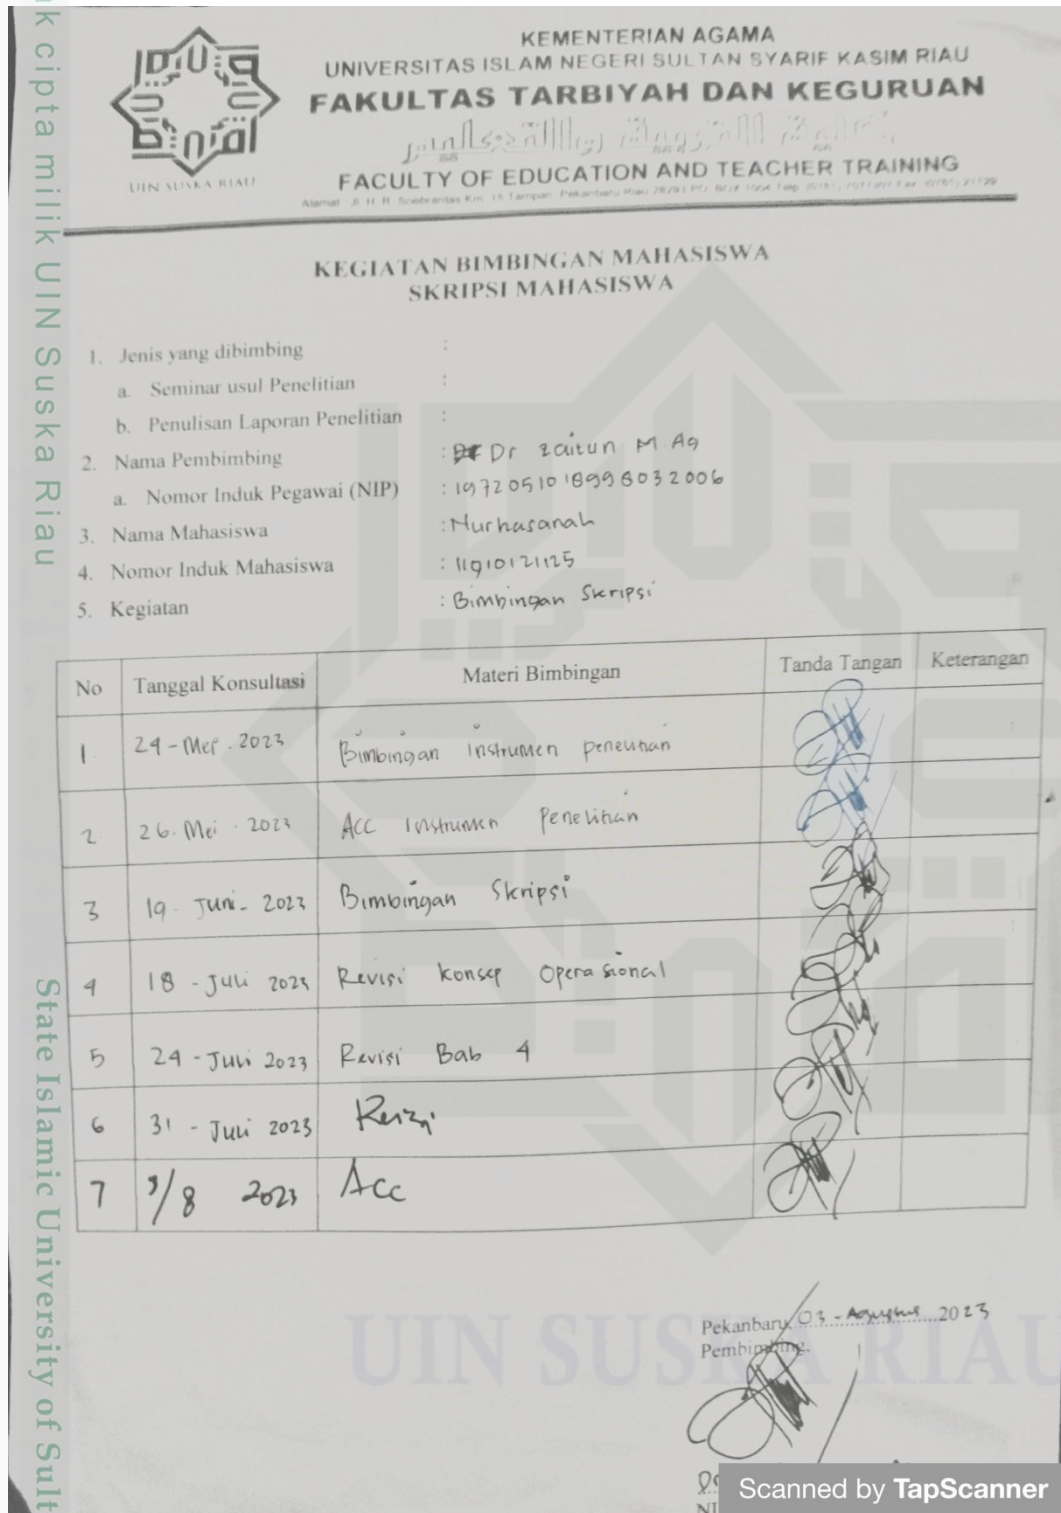 k cipta milik UIN Suska Riau
State Islamic University of Sult
UIN SUSKA RIAU
KEMENTERIAN AGAMA
UNIVERSITAS ISLAM NEGERI SULTAN SYARIF KASIM RIAU
FAKULTAS TARBIYAH DAN KEGURUAN
كلية التربية والتعليم
FACULTY OF EDUCATION AND TEACHER TRAINING
Alamat Jl. H. R. Soebrantas Km. 15 Tampan Pekanbaru Riau
KEGIATAN BIMBINGAN MAHASISWA
SKRIPSI MAHASISWA
1. Jenis yang dibimbing :
a. Seminar usul Penelitian :
b. Penulisan Laporan Penelitian :
2. Nama Pembimbing : Dr Zaitun M.Ag
a. Nomor Induk Pegawai (NIP) : 19720510 18998032006
3. Nama Mahasiswa : Nurhasanah
4. Nomor Induk Mahasiswa : 11910121125
5. Kegiatan : Bimbingan Skripsi
No Tanggal Konsultasi Materi Bimbingan Tanda Tangan Keterangan
1. 24 - Mei . 2023 Bimbingan instrumen penelitian
2. 26. Mei . 2023 Acc Instrumen Penelitian
3 19 - Juni - 2023 Bimbingan Skripsi
4 18 - Juli 2023 Revisi Konsep Operasional
5 24 - Juli 2023 Revisi Bab 4
6 31 - Juli 2023
7 3/8 2023 Acc
Pekanbaru, 03 - Agustus 2023
Pembimbing.
UIN SUSKA RIAU
Scanned by TapScanner